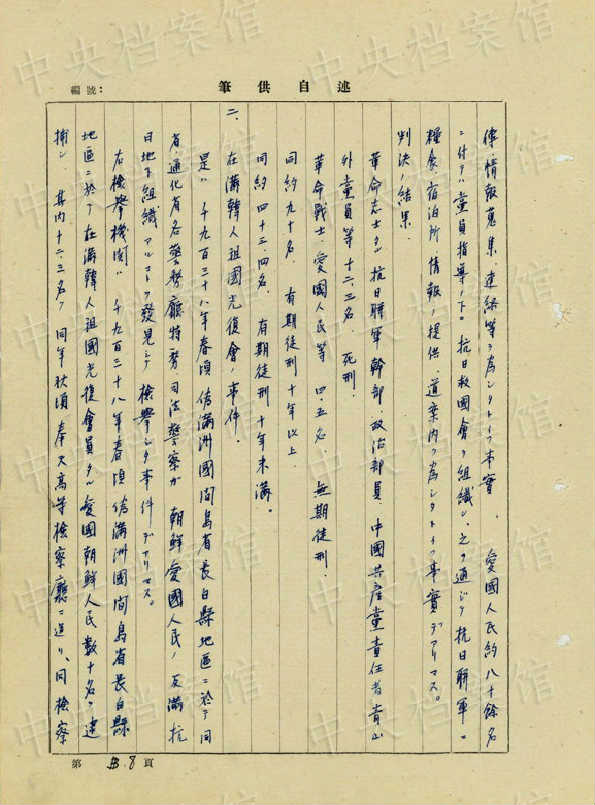 編號：
筆供自述
傳、情報蒐集、連絡等ヲ為シタトイフ事實、愛國人民約八十餘名
ニ付テハ黨員指導ノ下ニ抗日救國會ヲ組織シ、之ヲ通ジテ抗日聯軍ニ
糧食、宿泊所、情報ノ提供、道案内ヲ為シタトイフ事實デアリマス。
判決ノ結果、
革命志士タル抗日聯軍幹部、政治部員、中國共産黨責任者責任
外黨員等十二、三名、死刑、
革命戰士、愛國人民等四、五名、無期徒刑、
同約九十名、有期徒刑十年以上、
同約四十三、四名、有期徒刑十年未滿。
二、在滿韓人祖國光復會ノ事件。
是ハ千九百三十八年春頃偽滿洲國間島省長白縣地區ニ於テ同
省通化省各警務廳特務司法警察ガ朝鮮愛國人民ノ反滿抗
日地下組織アルコトヲ發見シテ檢擧シタ事件デアリマス。
右檢擧機関ハ千九百三十八年春頃偽滿洲國間島省長白縣
地區ニ於テ在滿韓人祖國光復會員タル愛國朝鮮人民數十名ヲ逮
捕シ、其内十二、三名ヲ同年秋頃奉天高等檢察廳ニ送リ、同檢察
第 8 頁
中央档案馆